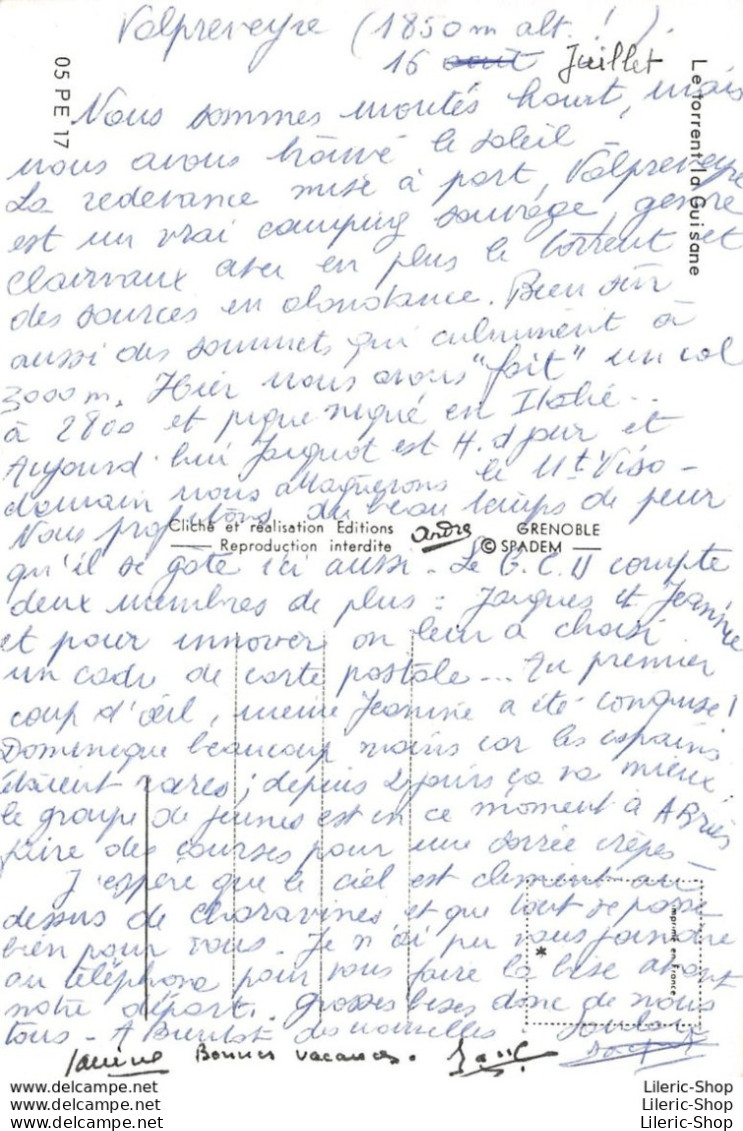 Valpreveyre (1850m alt. !).
16 août Juillet
Nous sommes montés haut, mais
nous avons trouvé le soleil -
La redevance mise à part, Valpreveyre
est un vrai camping sauvage, genre
Clairvaux avec en plus le torrent et
des sources en abondance. Bien sûr
aussi des sommets qui culminent à
3000 m. Hier nous avons "fait" un col
à 2800 et pique niqué en Italie..
Aujourd'hui Jacquot est H. d jour et
demain nous attaquerons le Mt Viso -
Nous profitons du beau temps de peur
qu'il se gâte ici aussi - Le G.C.U compte
deux membres de plus : Jacques et Jeanine
et pour innover on leur a choisi
un cadre de carte postale... Au premier
coup d'œil, même Jeanine a été conquise !
Dominique beaucoup moins car les copains
étaient rares ; depuis 2 jours ça va mieux
le groupe de jeunes est en ce moment à ABriès
faire des courses pour une soirée crêpes -
J'espère que le ciel est clément au
dessus de Charavines et que tout se passe
bien pour vous. Je n'ai pu vous joindre
au téléphone pour vous faire la bise avant
notre départ. Grosses bises donc de nous
tous - A Bientôt des nouvelles.
Janine Bonnes vacances.
05 PE 17
Le torrent la Guisane
Cliché et réalisation Editions André GRENOBLE
Reproduction interdite © SPADEM
Imprimé en France
*
Lileric-Shop
Lileric-Shop
Lileric-Shop